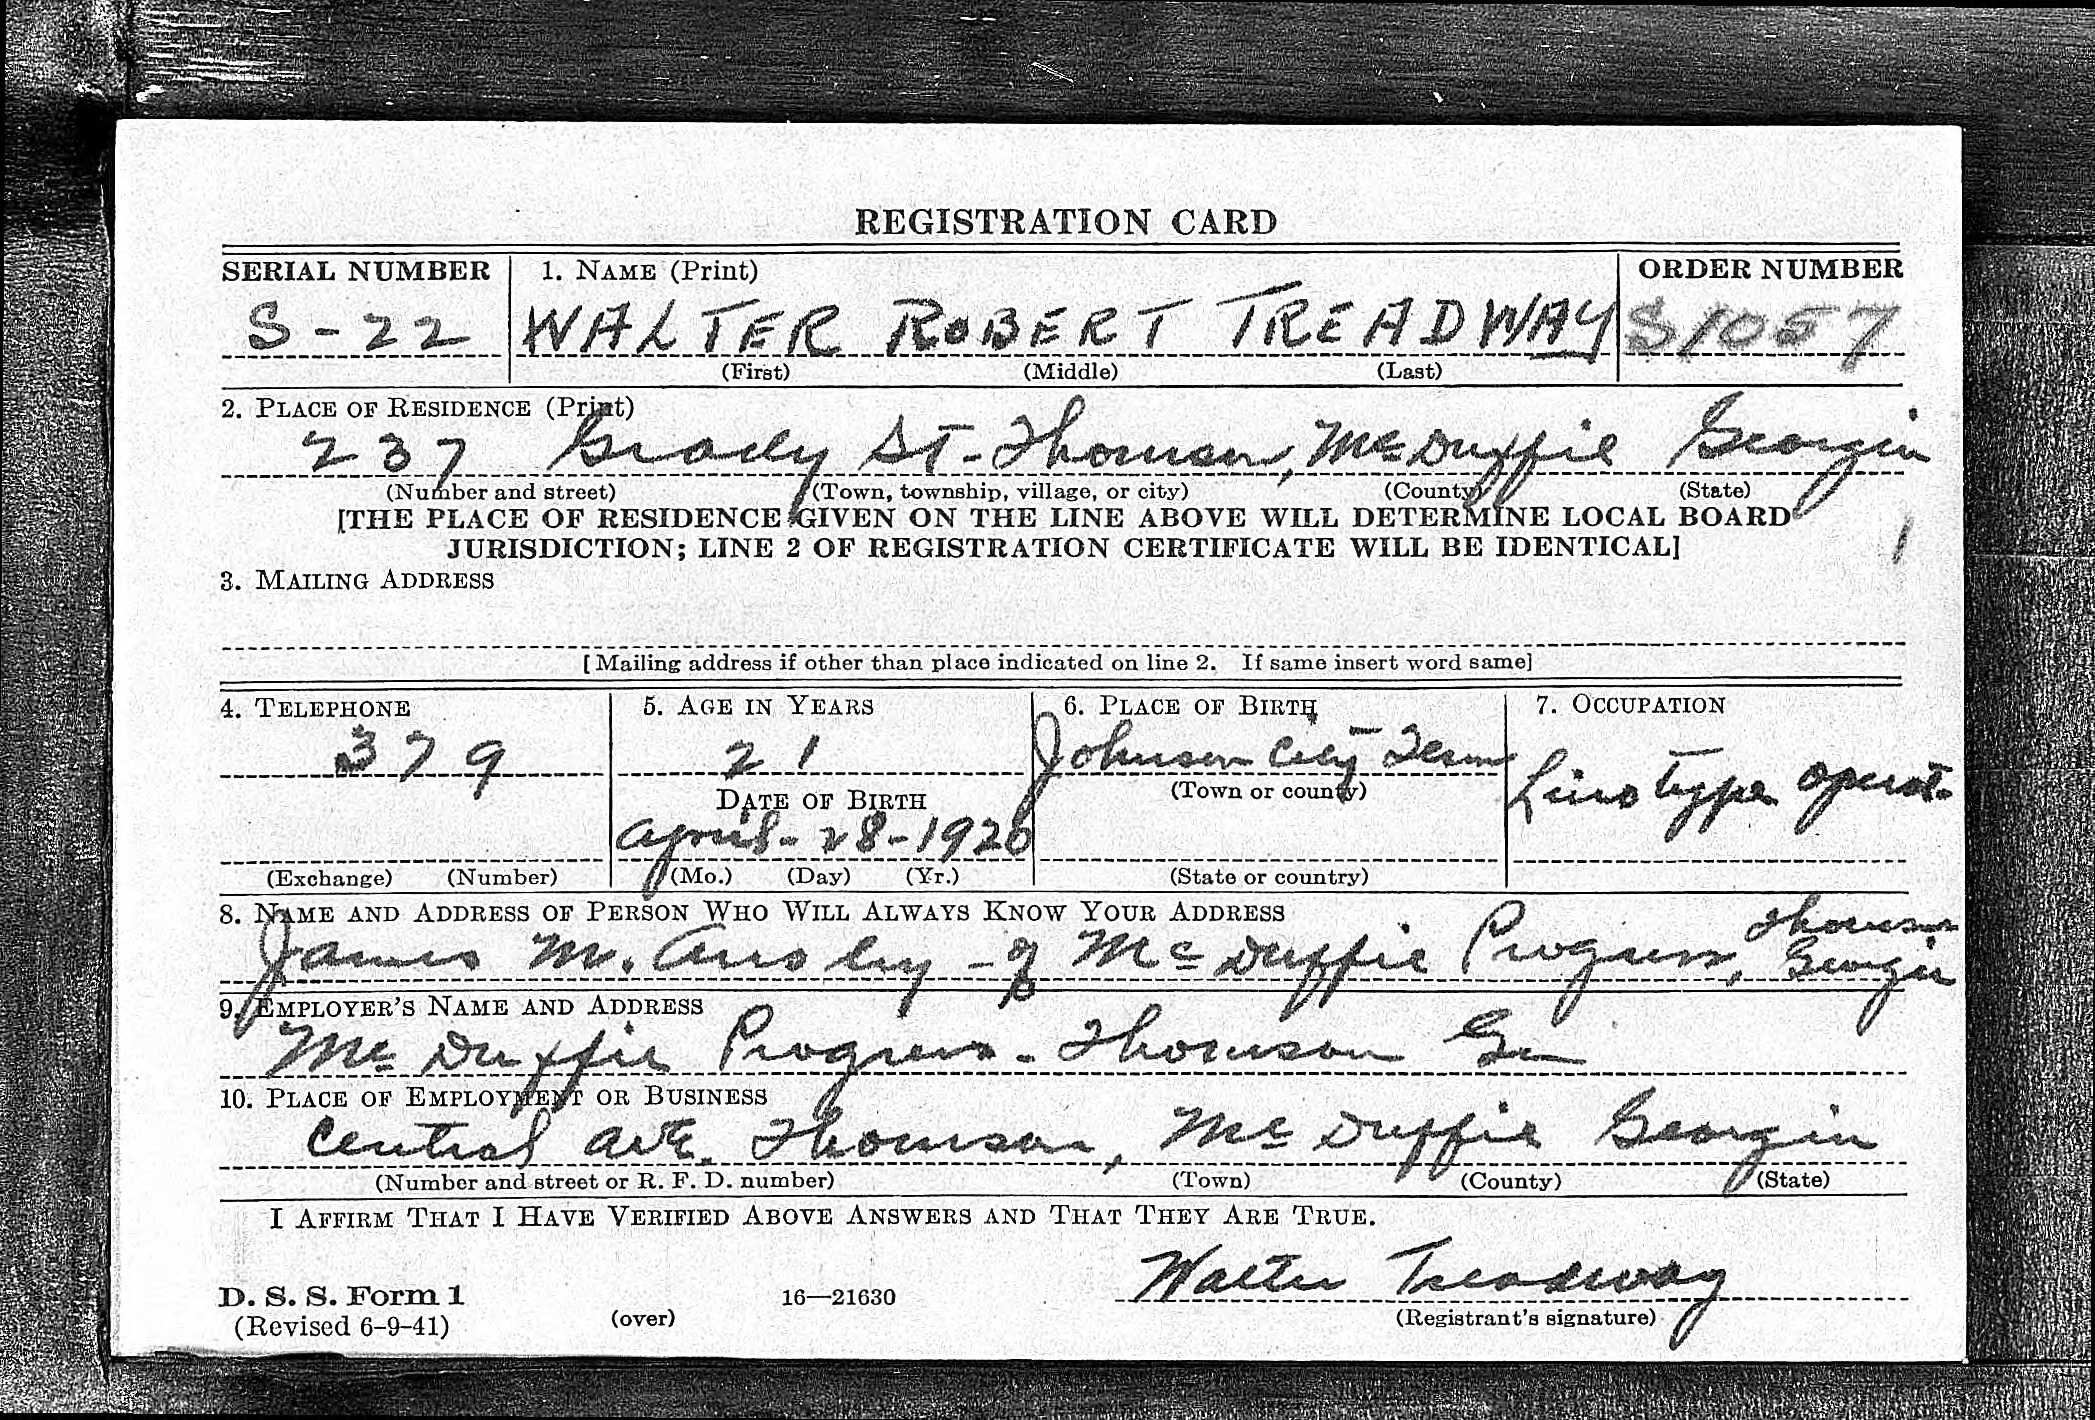 REGISTRATION CARD
SERIAL NUMBER 1. NAME (Print) ORDER NUMBER
S-22 WALTER ROBERT TREADWAY S1057
(First) (Middle) (Last)
2. PLACE OF RESIDENCE (Print)
237 Grady St-Thomson, McDuffie Georgia
(Number and street) (Town, township, village, or city) (County) (State)
[THE PLACE OF RESIDENCE GIVEN ON THE LINE ABOVE WILL DETERMINE LOCAL BOARD
JURISDICTION; LINE 2 OF REGISTRATION CERTIFICATE WILL BE IDENTICAL]
3. MAILING ADDRESS
[Mailing address if other than place indicated on line 2. If same insert word same]
4. TELEPHONE 5. AGE IN YEARS 6. PLACE OF BIRTH 7. OCCUPATION
379 21 Johnson City Tenn Linotype operat.
DATE OF BIRTH (Town or county)
April-28-1920
(Exchange) (Number) (Mo.) (Day) (Yr.) (State or country)
8. NAME AND ADDRESS OF PERSON WHO WILL ALWAYS KNOW YOUR ADDRESS
James M. Ansley - of McDuffie Progress, Thomson Georgia
9. EMPLOYER'S NAME AND ADDRESS
McDuffie Progress - Thomson Ga
10. PLACE OF EMPLOYMENT OR BUSINESS
Central Ave. Thomson, McDuffie Georgia
(Number and street or R. F. D. number) (Town) (County) (State)
I AFFIRM THAT I HAVE VERIFIED ABOVE ANSWERS AND THAT THEY ARE TRUE.
Walter Treadway
D. S. S. Form 1 16—21630
(Revised 6-9-41) (over) (Registrant's signature)